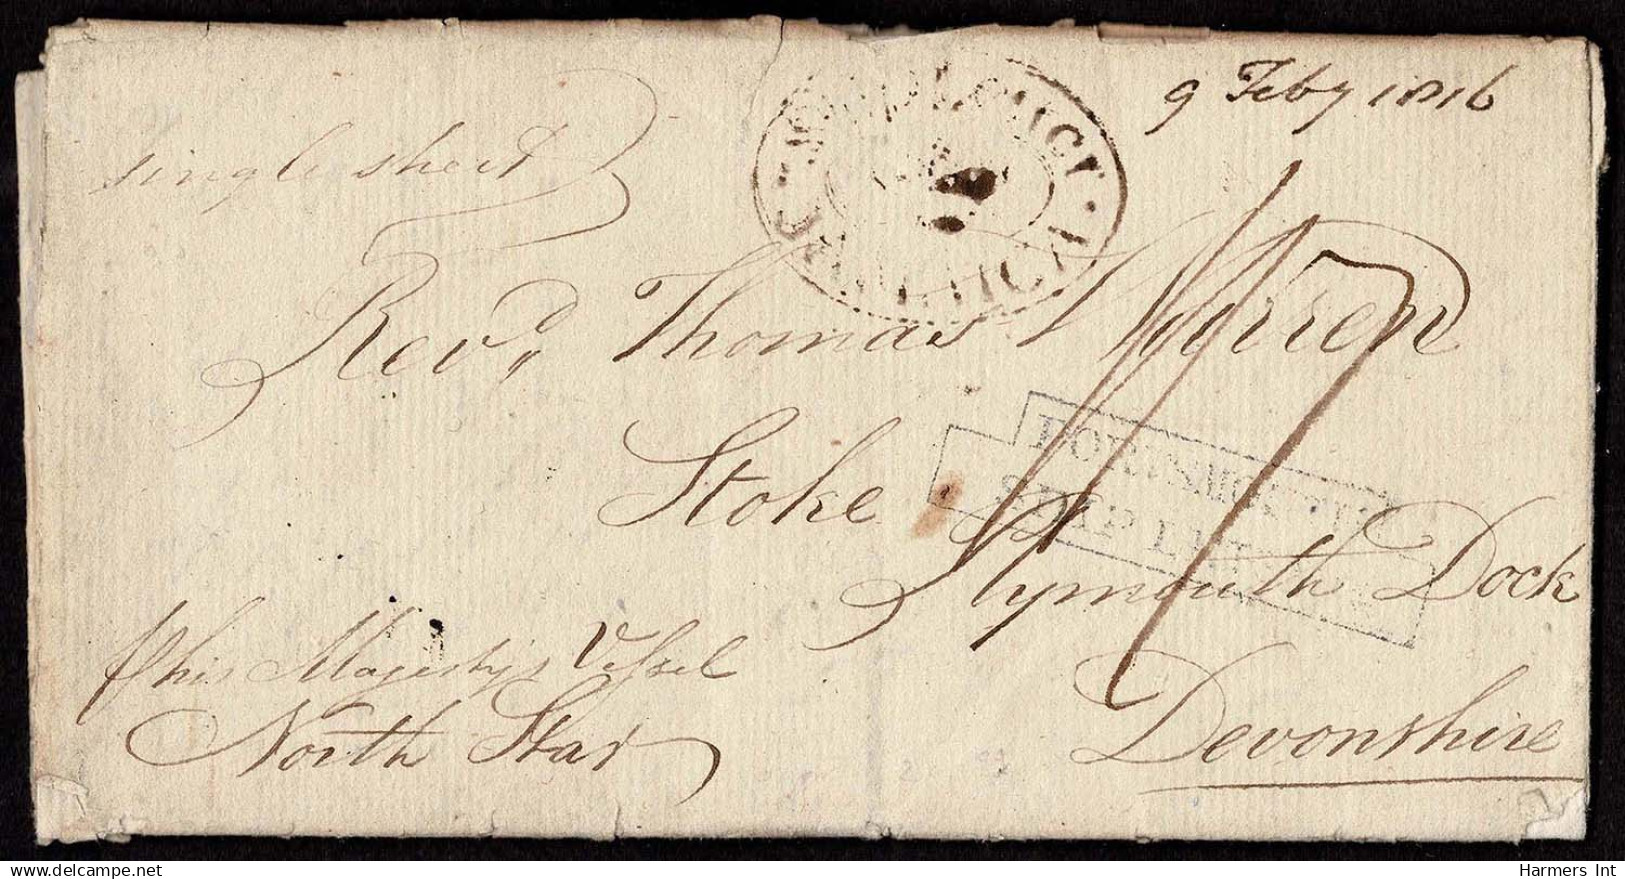 9 Feby 1816
single sheet
Revd Thomas Warren
Stoke
PORTSMOUTH
SHIP LETTER
Plymouth Dock
Devonshire
p his Majesty's Vessel
North Star
Harmers Int